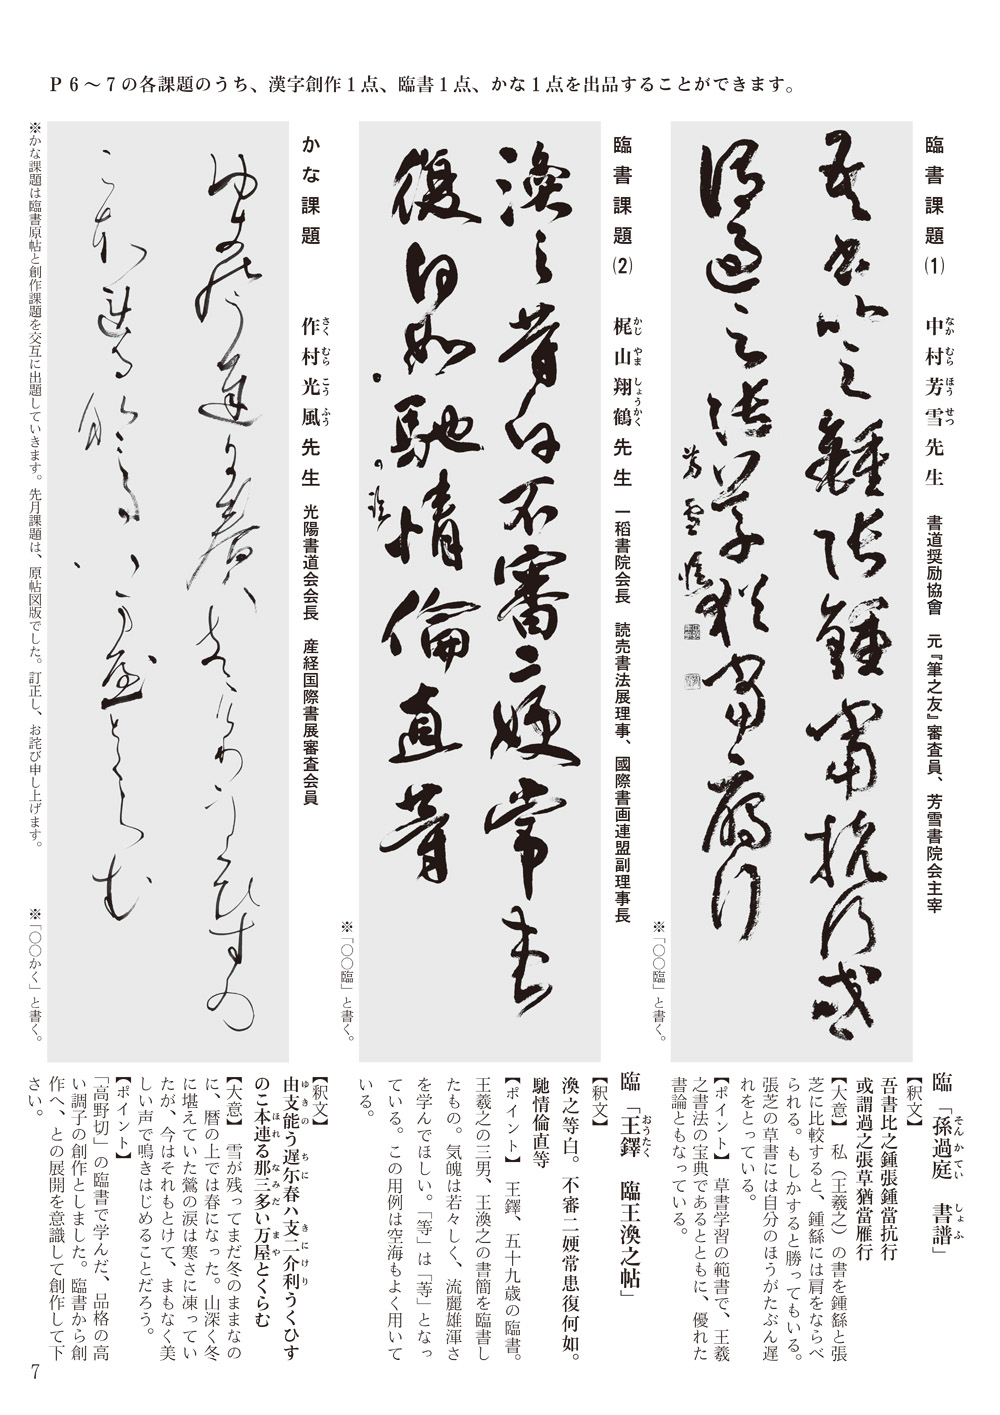 P6～7の各課題のうち、漢字創作1点、臨書1点、かな1点を出品することができます。
臨書課題(1)　中村芳雪先生　書道奨励協會　元『筆之友』審査員、芳雪書院会主宰
なかむらほうせつ
吾書比之鍾張鍾當抗行或
謂過之張草猶當雁行
芳雪臨
※「〇〇臨」と書く。
臨「孫過庭　書譜」
そんかてい　しょふ
【釈文】
吾書比之鍾張鍾當抗行
或謂過之張草猶當雁行
【大意】　私（王羲之）の書を鍾繇と張
芝に比較すると、鍾繇には肩をならべ
られる。もしかすると勝ってもいる。
張芝の草書には自分のほうがたぶん遅
れをとっている。
【ポイント】　草書学習の範書で、王羲
之書法の宝典であるとともに、優れた
書論ともなっている。
臨書課題(2)　梶山翔鶴先生　一稲書院会長　読売書法展理事、國際書画連盟副理事長
かじやましょうかく
渙之等白不審二㛐常患
復何如馳情倫直等
※「〇〇臨」と書く。
臨「王鐸　臨王渙之帖」
おうたく
【釈文】
渙之等白。不審二㛐常患復何如。
馳情倫直等
【ポイント】　王鐸、五十九歳の臨書。
王羲之の三男、王渙之の書簡を臨書し
たもの。気魄は若々しく、流麗雄渾さ
を学んでほしい。「等」は「䓁」となっ
ている。この用例は空海もよく用いて
いる。
かな課題　作村光風先生　光陽書道会会長　産経国際書展審査会員
さくむらこうふう
由支能う遅尓春ハ支二介利うくひすの
こ本連る那三多い万屋とくらむ
※「〇〇かく」と書く。
※かな課題は臨書原帖と創作課題を交互に出題していきます。先月課題は、原帖図版でした。訂正し、お詫び申し上げます。
【釈文】
由支能う遅尓春ハ支二介利うくひす
ゆきの　ちに　きにけり
のこ本連る那三多い万屋とくらむ
ほれ　なみだ　まや
【大意】　雪が残ってまだ冬のままなの
に、暦の上では春になった。山深く冬
に堪えていた鶯の涙は寒さに凍ってい
たが、今はそれもとけて、まもなく美
しい声で鳴きはじめることだろう。
【ポイント】
「高野切」の臨書で学んだ、品格の高
い調子の創作としました。臨書から創
作へ、との展開を意識して創作して下
さい。
7